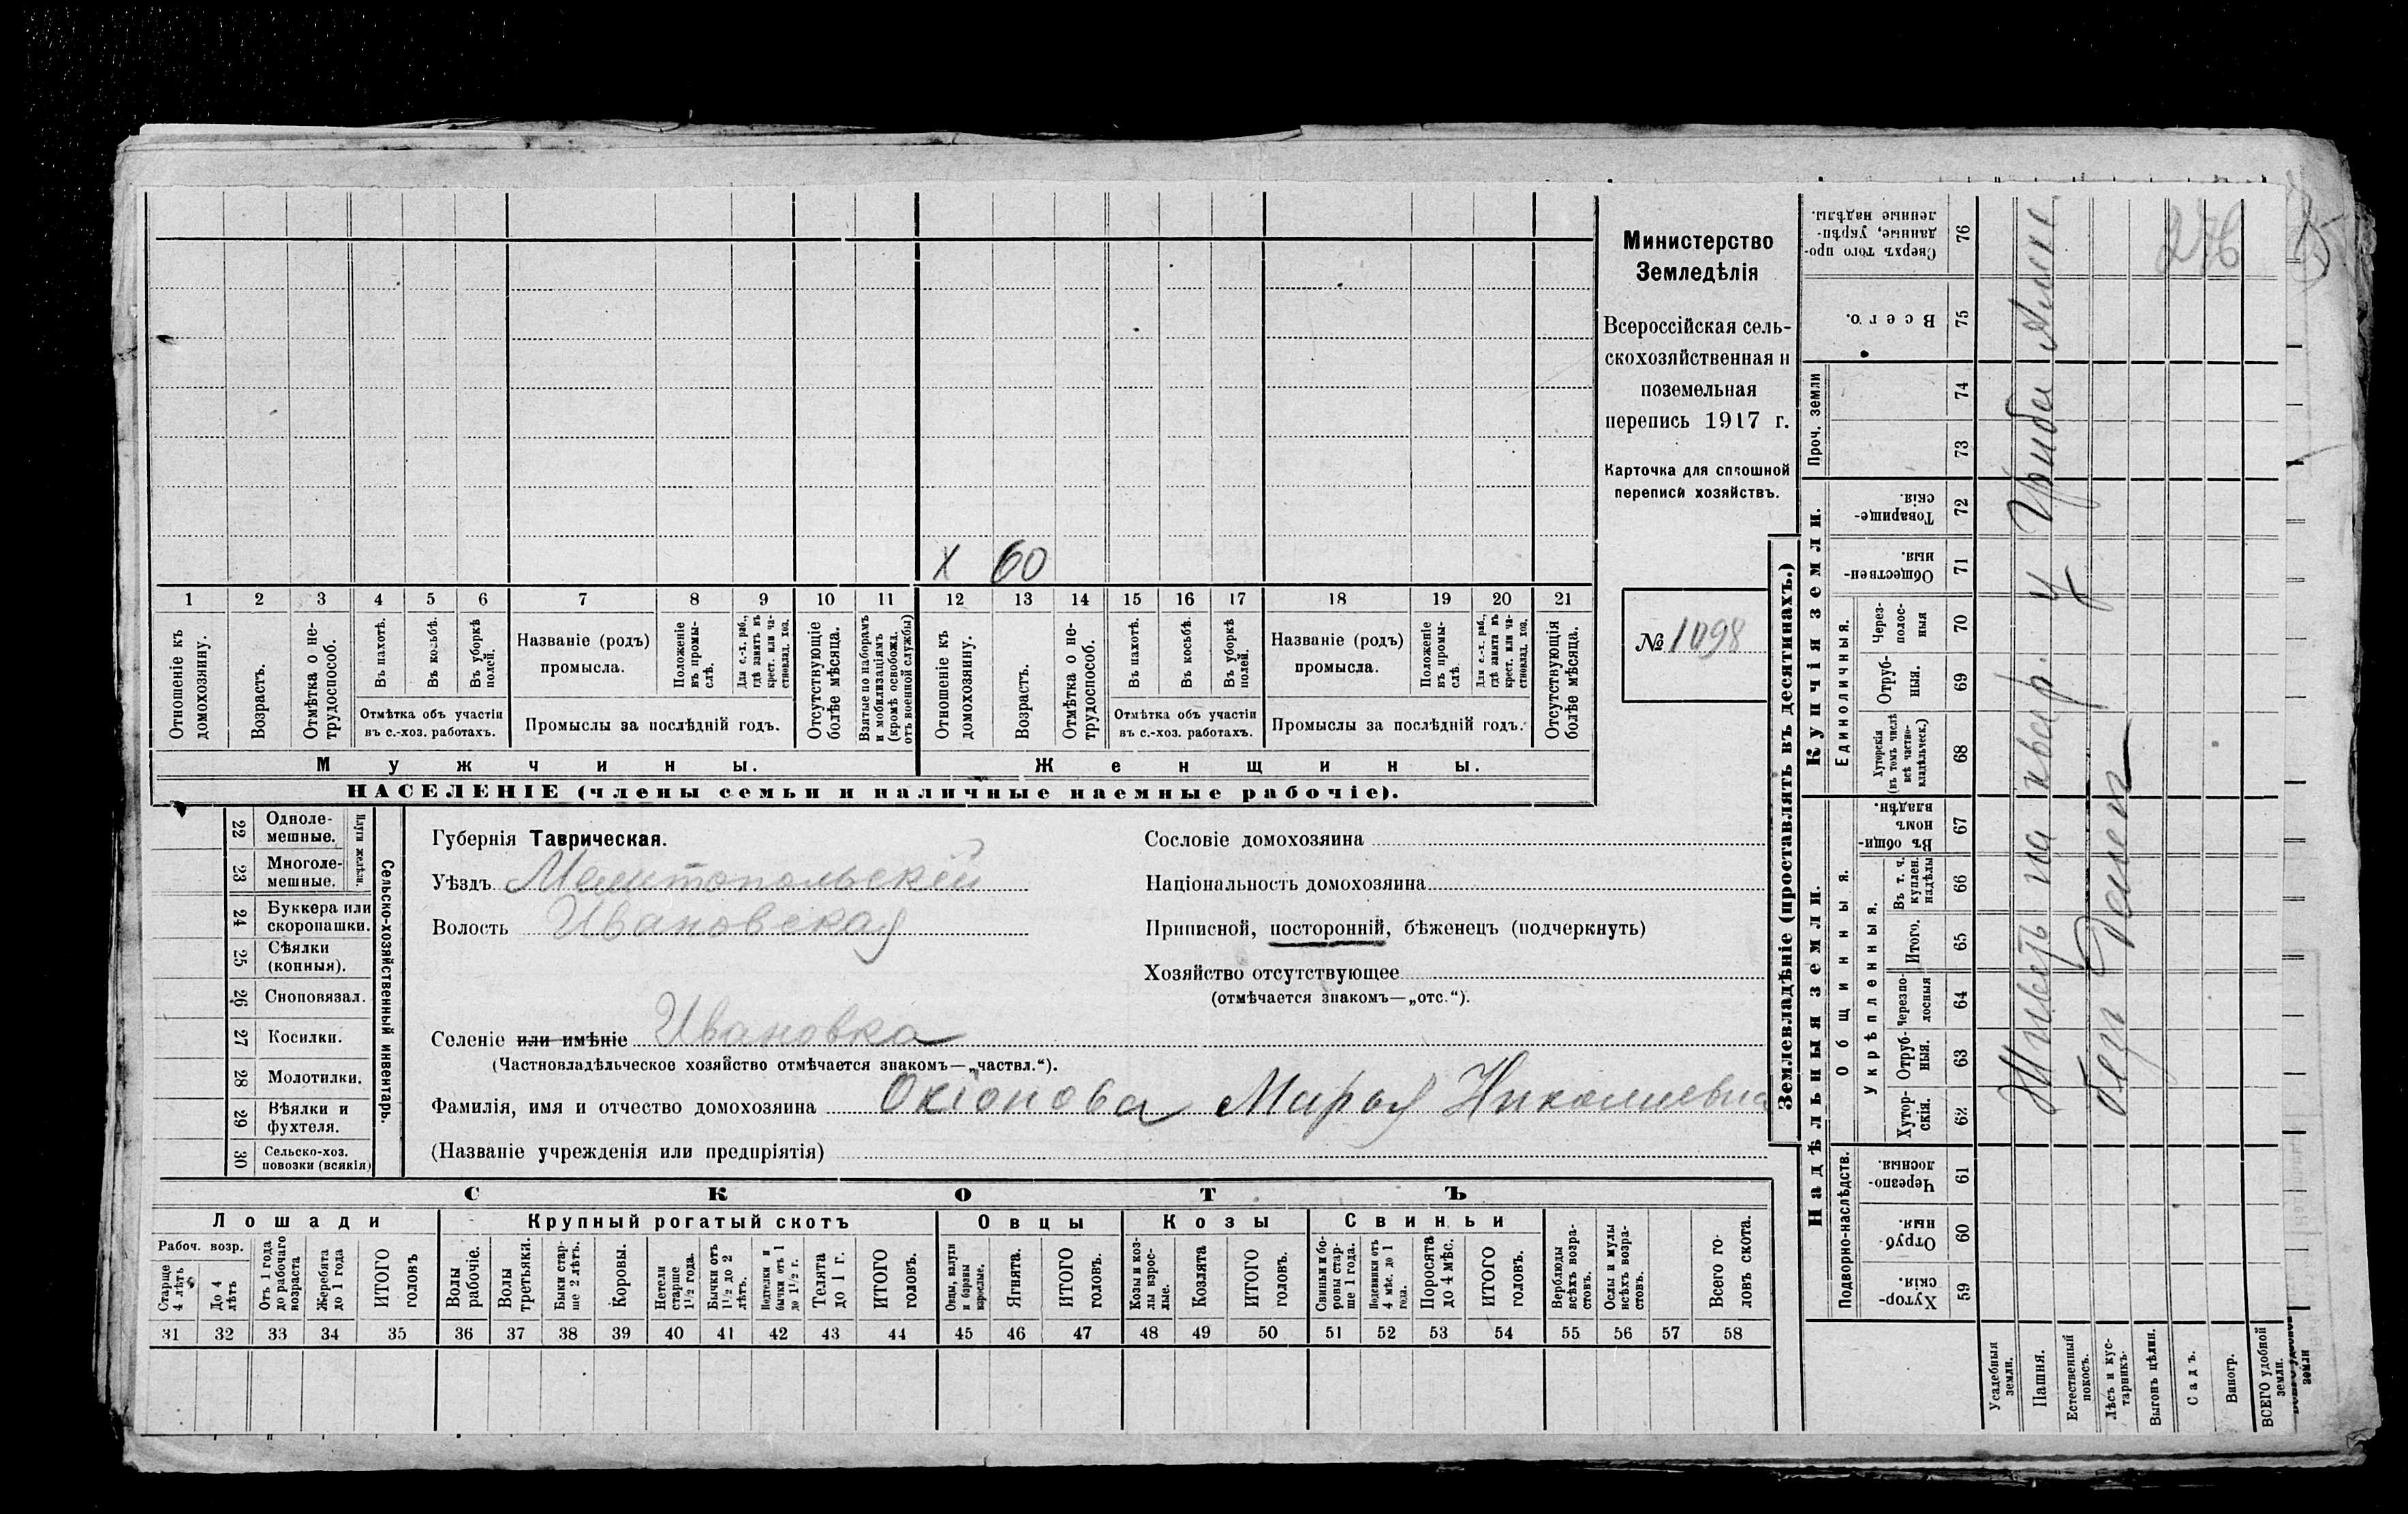 Министерство
Земледѣлія
Всероссійская сель-
скохозяйственная и
поземельная
перепись 1917 г.
Карточка для сплошной
переписи хозяйствъ.
№ 1098
X 60
1 2 3 4 5 6 7 8 9 10 11 12 13 14 15 16 17 18 19 20 21
Отношеніе къ домохозяину.
Возрастъ.
Отмѣтка о не-трудоспособ.
Въ пахотѣ.
Въ косьбѣ.
Въ уборкѣ полей.
Отмѣтка объ участіи
въ с.-хоз. работахъ.
Названіе (родъ)
промысла.
Положеніе въ промы-слѣ.
Для с.-х. раб., гдѣ занятъ въ крест. или ча-стновлад. хоз.
Промыслы за послѣдній годъ.
Отсутствующіе болѣе мѣсяца.
Взятые по наборамъ и мобилизаціямъ (кромѣ освобожд. отъ военной службы)
Отношеніе къ домохозяину.
Возрастъ.
Отмѣтка о не-трудоспособ.
Въ пахотѣ.
Въ косьбѣ.
Въ уборкѣ полей.
Отмѣтка объ участіи
въ с.-хоз. работахъ.
Названіе (родъ)
промысла.
Положеніе въ промы-слѣ.
Для с.-х. раб., гдѣ занята въ крест. или ча-стновлад. хоз.
Промыслы за послѣдній годъ.
Отсутствующія болѣе мѣсяца.
Мужчины.
Женщины.
НАСЕЛЕНІЕ (члены семьи и наличные наемные рабочіе).
22 Одноле-мешные.
23 Многоле-мешные.
Плуги желѣзн.
24 Буккера или скоропашки.
25 Сѣялки (конныя).
26 Сноповязал.
27 Косилки.
28 Молотилки.
29 Вѣялки и фухтеля.
30 Сельско-хоз. повозки (всякія)
Сельско-хозяйственный инвентарь.
Губернія Таврическая.
Уѣздъ Мелитопольскій
Волость Ивановская
Селеніе или имѣніе Ивановка
(Частновладѣльческое хозяйство отмѣчается знакомъ—„частвл.“).
Фамилія, имя и отчество домохозяина Окіонова Марья Николаевна
(Названіе учрежденія или предпріятія)
Сословіе домохозяина
Національность домохозяина
Приписной, посторонній, бѣженецъ (подчеркнуть)
Хозяйство отсутствующее
(отмѣчается знакомъ—„отс.“).
СКОТЪ
Лошади
Крупный рогатый скотъ
Овцы
Козы
Свиньи
Рабоч. возр.
Старше 4 лѣтъ
До 4 лѣтъ
Отъ 1 года до рабочаго возраста
Жеребята до 1 года
ИТОГО головъ
Волы рабочіе.
Волы третьяки.
Быки стар-ше 2 лѣтъ.
Коровы.
Нетели старше 1½ года.
Бычки отъ 1½ до 2 лѣтъ.
Подтелки и бычки отъ 1 до 1½ г.
Телята до 1 г.
ИТОГО головъ.
Овцы, валухи и бараны взрослые.
Ягнята.
ИТОГО головъ.
Козы и коз-лы взрос-лые.
Козлята
ИТОГО головъ.
Свиньи и бо-ровы стар-ше 1 года.
Подсвинки отъ 4 мѣс. до 1 года.
Поросята до 4 мѣс.
ИТОГО головъ.
Верблюды всѣхъ возра-стовъ.
Ослы и мулы всѣхъ возра-стовъ.
Всего го-ловъ скота.
31 32 33 34 35 36 37 38 39 40 41 42 43 44 45 46 47 48 49 50 51 52 53 54 55 56 57 58
Землевладѣніе (проставлять въ десятинахъ.)
Надѣльныя земли.
Купчія земли.
Проч. земли
Подворно-наслѣдств.
Общинныя.
Укрѣпленныя.
Единоличныя.
59 Хутор-скія.
60 Отруб-ныя.
61 Черезпо-лосныя.
62 Хутор-скія.
63 Отруб-ныя.
64 Черезпо-лосныя
65 Итого.
66 Въ т. ч. куплен. надѣлы
67 Въ общин-номъ владѣн.
68 Хуторскія (въ томъ числѣ всѣ частно-владѣльческ.)
69 Отруб-ныя.
70 Через-полос-ныя
71 Обществен-ныя
72 Товарище-скія.
73
74
75 Всего.
76 Сверхъ того про-данные, укрѣп-ленные надѣлы.
Усадебныя земли.
Пашня.
Естественный покосъ.
Лѣсъ и кус-тарникъ.
Выгонъ цѣлин.
Садъ.
Виногр.
ВСЕГО удобной земли.
Живетъ на квар. у
276